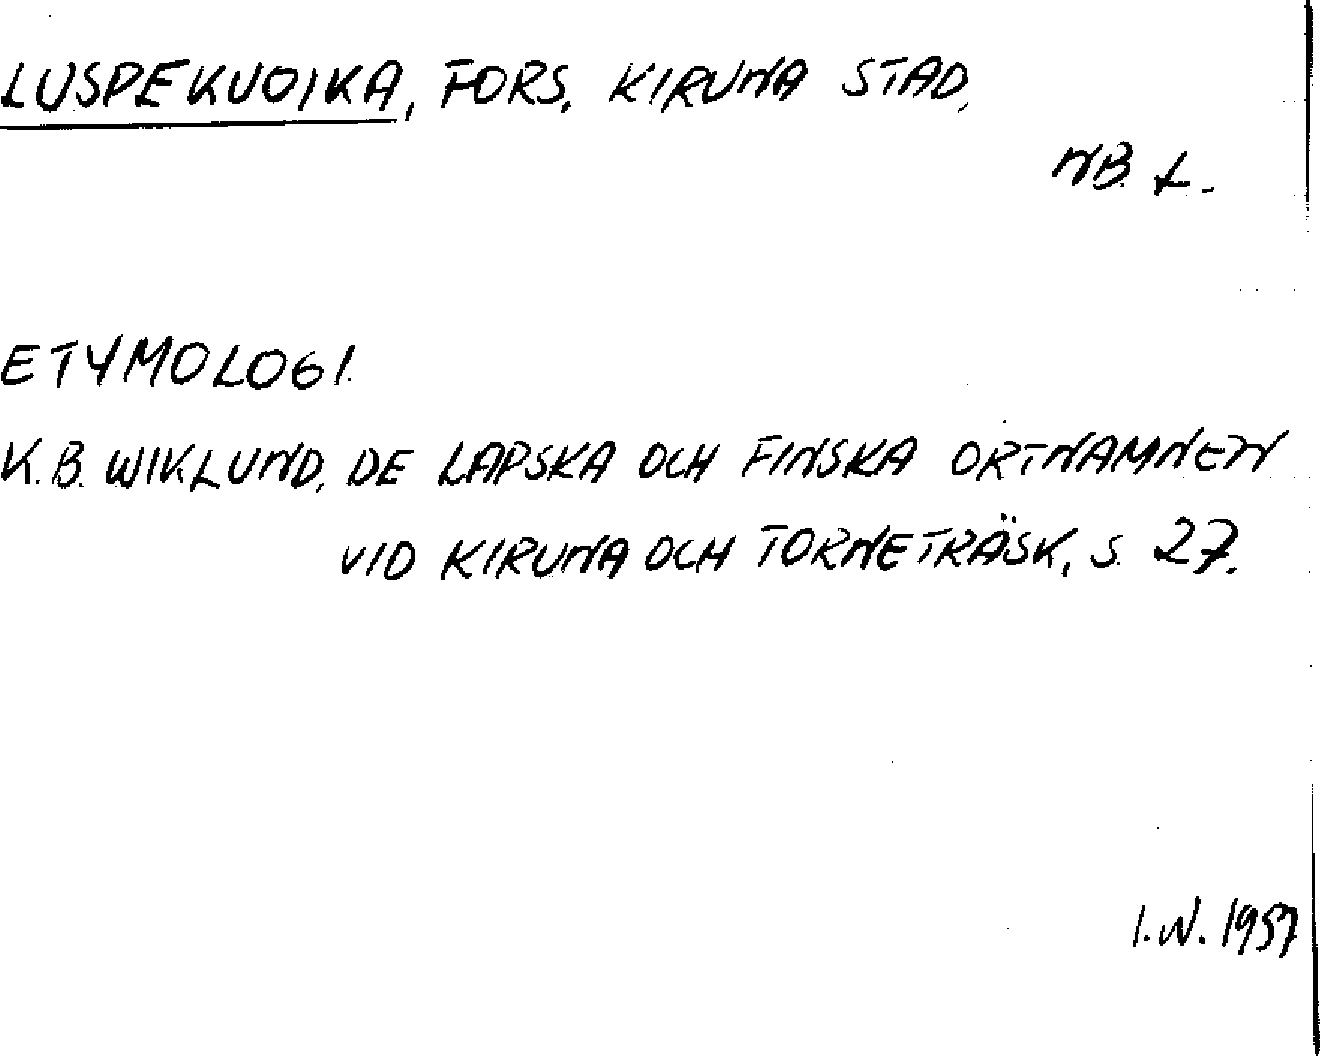 LUSPEKUOIKA, FORS, KIRUNA STAD,
NB. L.
ETYMOLOGI.
K.B. WIKLUND, DE LAPSKA OCH FINSKA ORTNAMNEN
VID KIRUNA OCH TORNETRÄSK, S. 27.
I.N. 1957